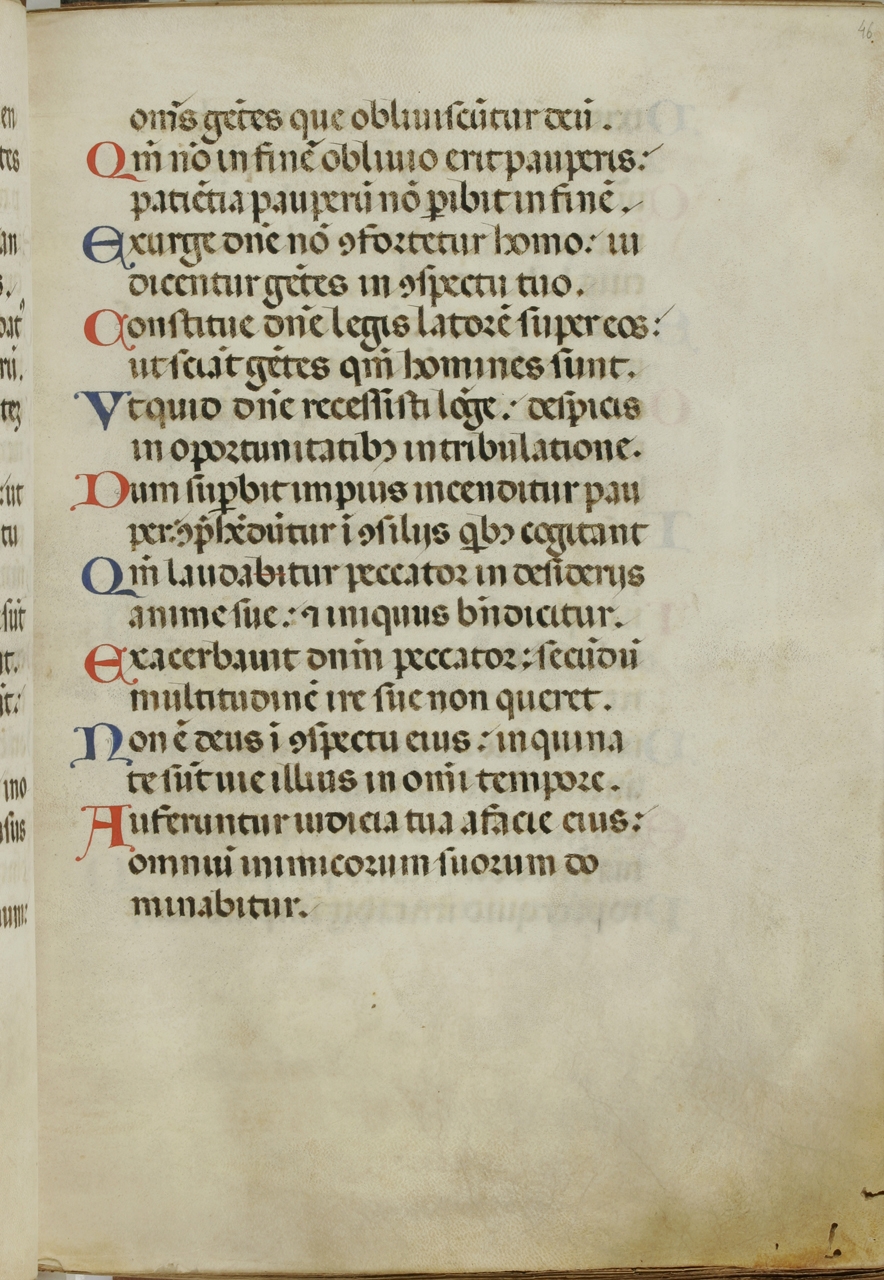 46.
om̅s ge̅tes que obliuiscu̅tur deu̅ .
Qm̅ no̅ in fine̅ obliuio erit pauperis:
patie̅tia pauperu̅ no̅ ꝑibit in fine̅ .
Exurge dn̅e no̅ ꝯfortetur homo: iu
dicentur ge̅tes in ꝯspectu tuo.
Constitue dn̅e legis latore̅ super eos:
ut scia̅t ge̅tes qm̅ homines sunt.
Vt quid dn̅e recessisti lo̅ge: despicis
in oportunitatibꝫ in tribulatione.
Dum suꝑbit impius incenditur pau
per: ꝯp̅he̅du̅tur i̅ ꝯsilijs qͥbꝫ cogitant
Qm̅ laudabitur peccator in desiderijs
anime sue: ⁊ iniquus bn̅dicitur.
Exacerbauit dnm̅ peccator: secu̅du̅
multitudine̅ ire sue non queret.
Non e̅ deus i̅ ꝯspectu eius: inquina
te su̅t uie illius in om̅i tempore.
Auferuntur iudicia tua a facie eius:
omniu̅ inimicorum suorum do
minabitur.